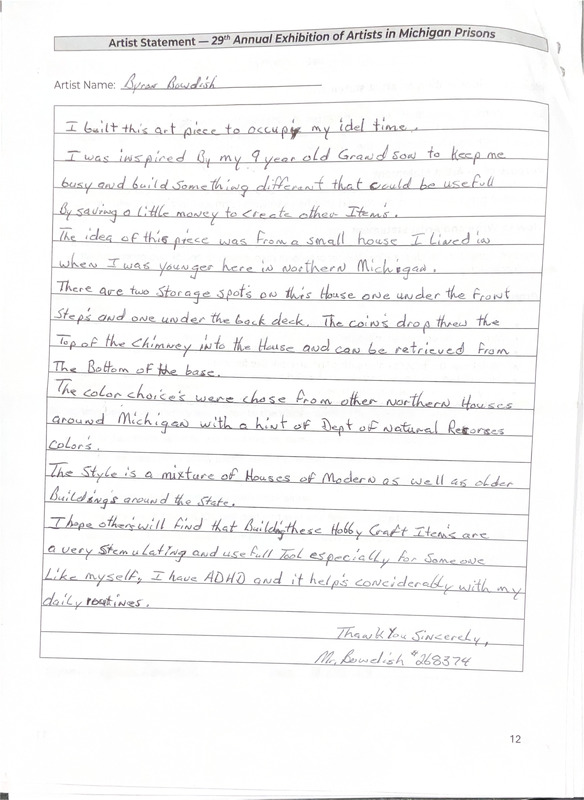 Artist Statement — 29th Annual Exhibition of Artists in Michigan Prisons
Artist Name: Byron Bowdish
I built this art piece to occupy my idel time.
I was inspired By my 9 year old Grand son to Keep me
busy and build something different that could be usefull
By saving a little money to create other Item's.
The idea of this piece was from a small house I Lived in
when I was younger here in northern Michigan.
There are two Storage spot's on this House one under the front
Step's and one under the back deck. The coin's drop threw the
Top of the Chimney into the House and can be retrieved from
The Bottom of the base.
The color choice's were chose from other northern Houses
around Michigan with a hint of Dept of Natural Resorses
Color's.
The Style is a mixture of Houses of Modern as well as older
Building's around the State.
I hope other's will find that Building these Hobby Craft Item's are
a very Stemulating and usefull Tool especially for Someone
Like myself, I have ADHD and it help's conciderably with my
daily routines.
Thank You Sincerely,
Mr. Bowdish #268374
12